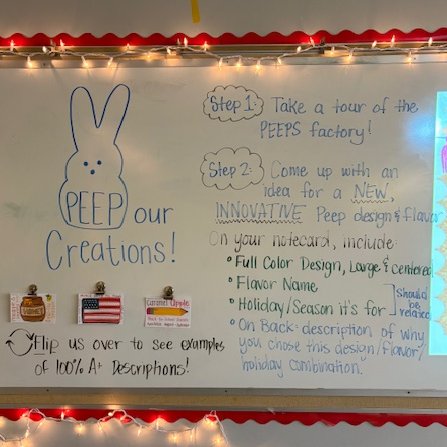 PEEP our
Creations!
Caramel Apple
Flip us over to see examples
of 100% A+ Descriptions!
Step 1: Take a tour of the
PEEPS factory!
Step 2: Come up with an
idea for a NEW,
INNOVATIVE Peep design & flavor
On your notecard, include:
• Full Color Design, Large & centered
• Flavor Name
• Holiday/Season it's for
should be related
• On Back- description of why
you chose this design/flavor/
holiday combination.